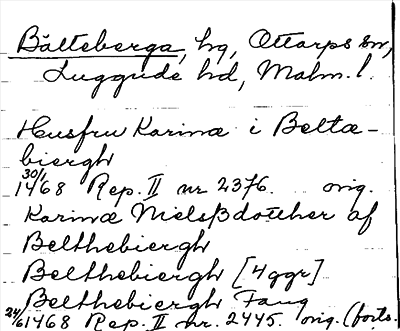 Bälteberga, hg, Ottarps sn,
Luggude hd, Malm. l.
Husfru Karinæ i Beltæ-
biergh
30/1 1468 Rep. II nr 2376. orig.
Karinæ Nielsßdotther af
Belthebiergh
Belthebiergh [4ggr]
Belthebiergh Fang
24/6 1468 Rep. II nr. 2445. orig. (forts.